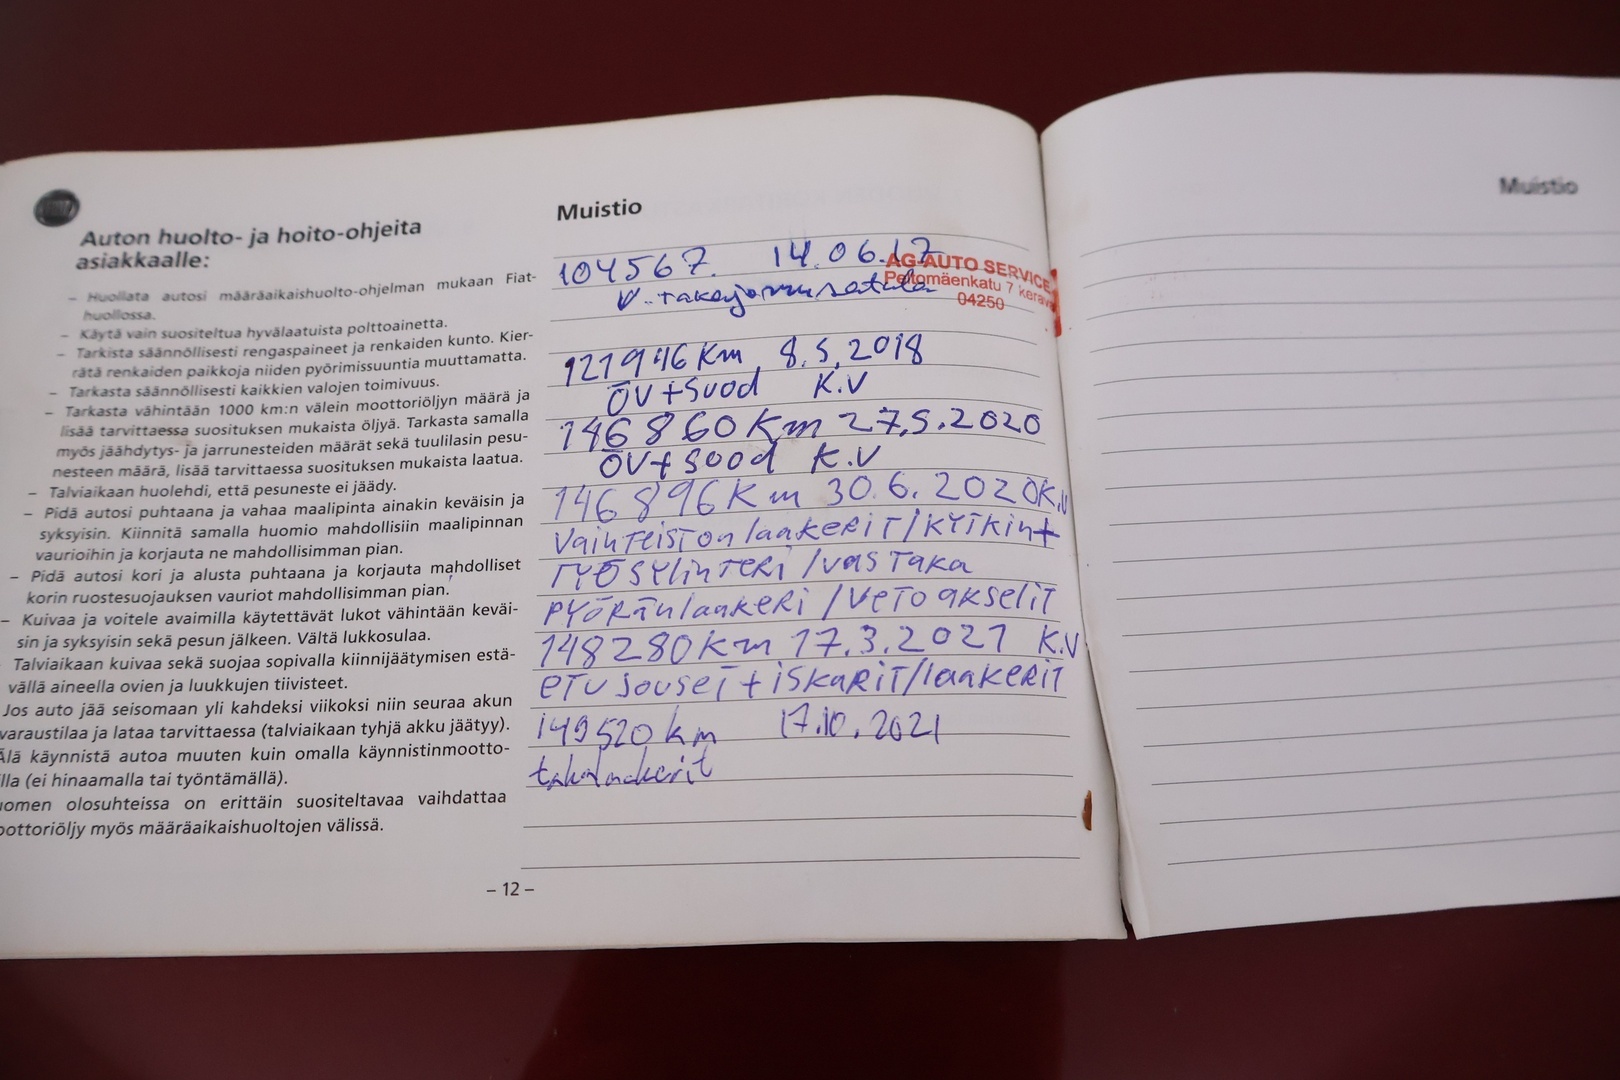 Auton huolto- ja hoito-ohjeita
asiakkaalle:
– Huollata autosi määräaikaishuolto-ohjelman mukaan Fiat-
huollossa.
– Käytä vain suositeltua hyvälaatuista polttoainetta.
– Tarkista säännöllisesti rengaspaineet ja renkaiden kunto. Kier-
rätä renkaiden paikkoja niiden pyörimissuuntia muuttamatta.
– Tarkasta säännöllisesti kaikkien valojen toimivuus.
– Tarkasta vähintään 1000 km:n välein moottoriöljyn määrä ja
lisää tarvittaessa suosituksen mukaista öljyä. Tarkasta samalla
myös jäähdytys- ja jarrunesteiden määrät sekä tuulilasin pesu-
nesteen määrä, lisää tarvittaessa suosituksen mukaista laatua.
– Talviaikaan huolehdi, että pesuneste ei jäädy.
– Pidä autosi puhtaana ja vahaa maalipinta ainakin keväisin ja
syksyisin. Kiinnitä samalla huomio mahdollisiin maalipinnan
vaurioihin ja korjauta ne mahdollisimman pian.
– Pidä autosi kori ja alusta puhtaana ja korjauta mahdolliset
korin ruostesuojauksen vauriot mahdollisimman pian.
– Kuivaa ja voitele avaimilla käytettävät lukot vähintään keväi-
sin ja syksyisin sekä pesun jälkeen. Vältä lukkosulaa.
Talviaikaan kuivaa sekä suojaa sopivalla kiinnijäätymisen estä-
vällä aineella ovien ja luukkujen tiivisteet.
Jos auto jää seisomaan yli kahdeksi viikoksi niin seuraa akun
varaustilaa ja lataa tarvittaessa (talviaikaan tyhjä akku jäätyy).
Älä käynnistä autoa muuten kuin omalla käynnistinmootto-
lla (ei hinaamalla tai työntämällä).
uomen olosuhteissa on erittäin suositeltavaa vaihdattaa
oottoriöljy myös määräaikaishuoltojen välissä.
– 12 –
Muistio
104567. 14.06.17
AG-AUTO SERVICE
Peltomäenkatu 7 kerava
04250
V.. takajarrusatula
121946 Km 8.5.2018
ÖV+Suod K.V
146860 Km 27.5.2020
ÖV+Suod K.V
146896 Km 30.6.2020 K.V
Vaihteiston laakerit/kytkin+
työsylinteri /vas taka
pyöränlaakeri /vetoakselit
148280 Km 17.3.2021 K.V
etu jouset + iskarit/laakerit
149520 km 17.10.2021
takalaakerit
Muistio